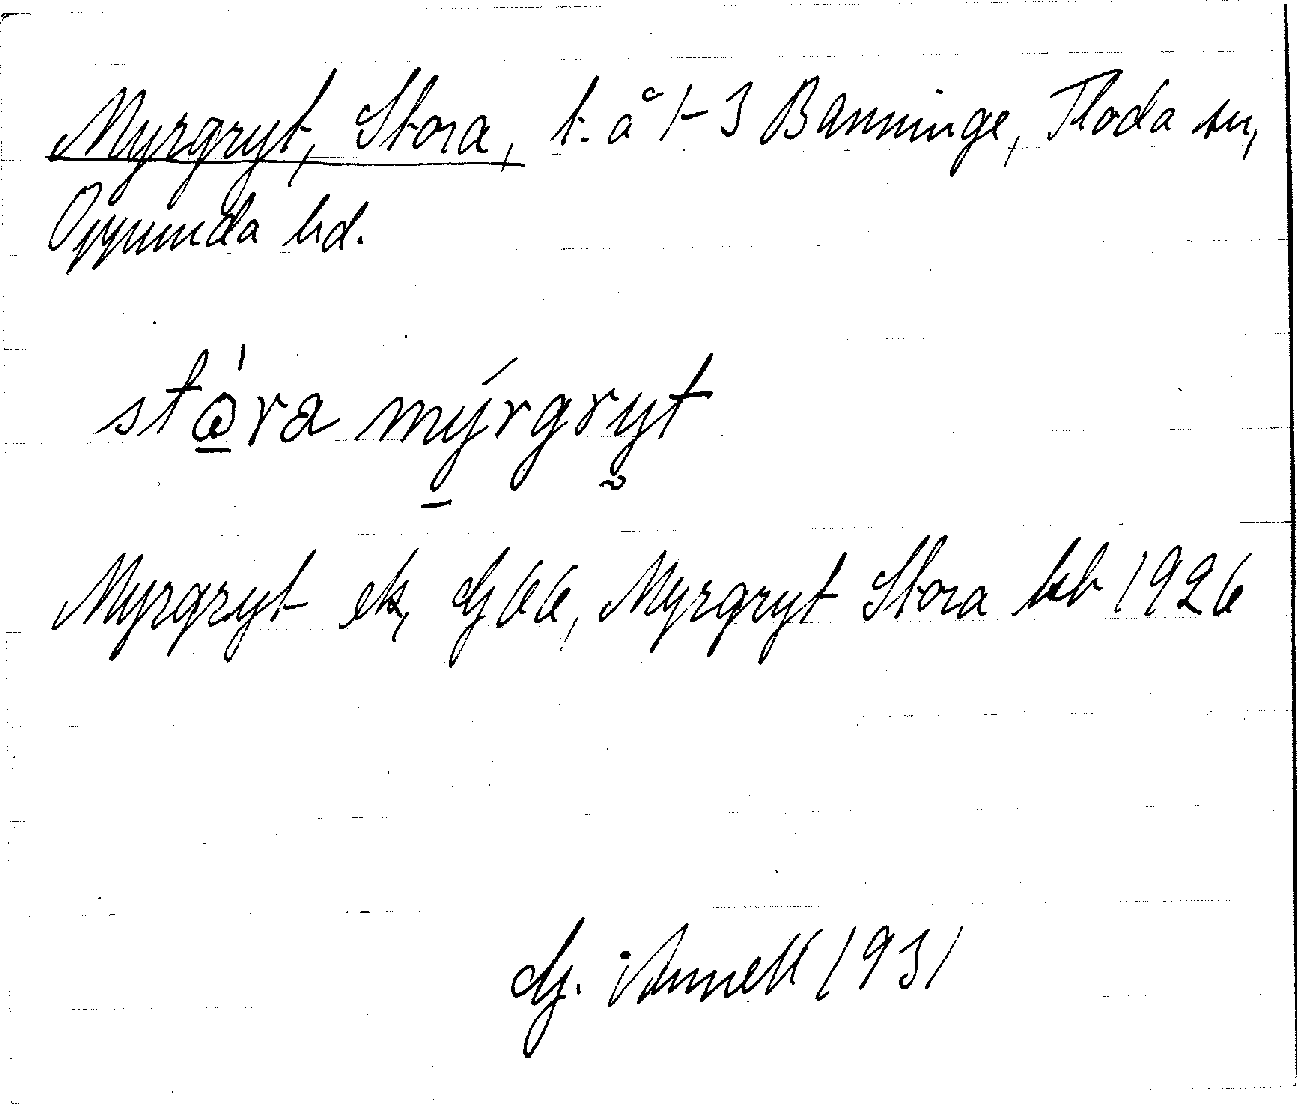 Myrgryt, Stora, t. å 1-3 Banninge, Floda sn,
Oppunda hd.
stɷ̠̀ra mýrgryt
Myrgryt ek, Gj 66, Myrgryt Stora kb 1926
Gj. Annell 1931